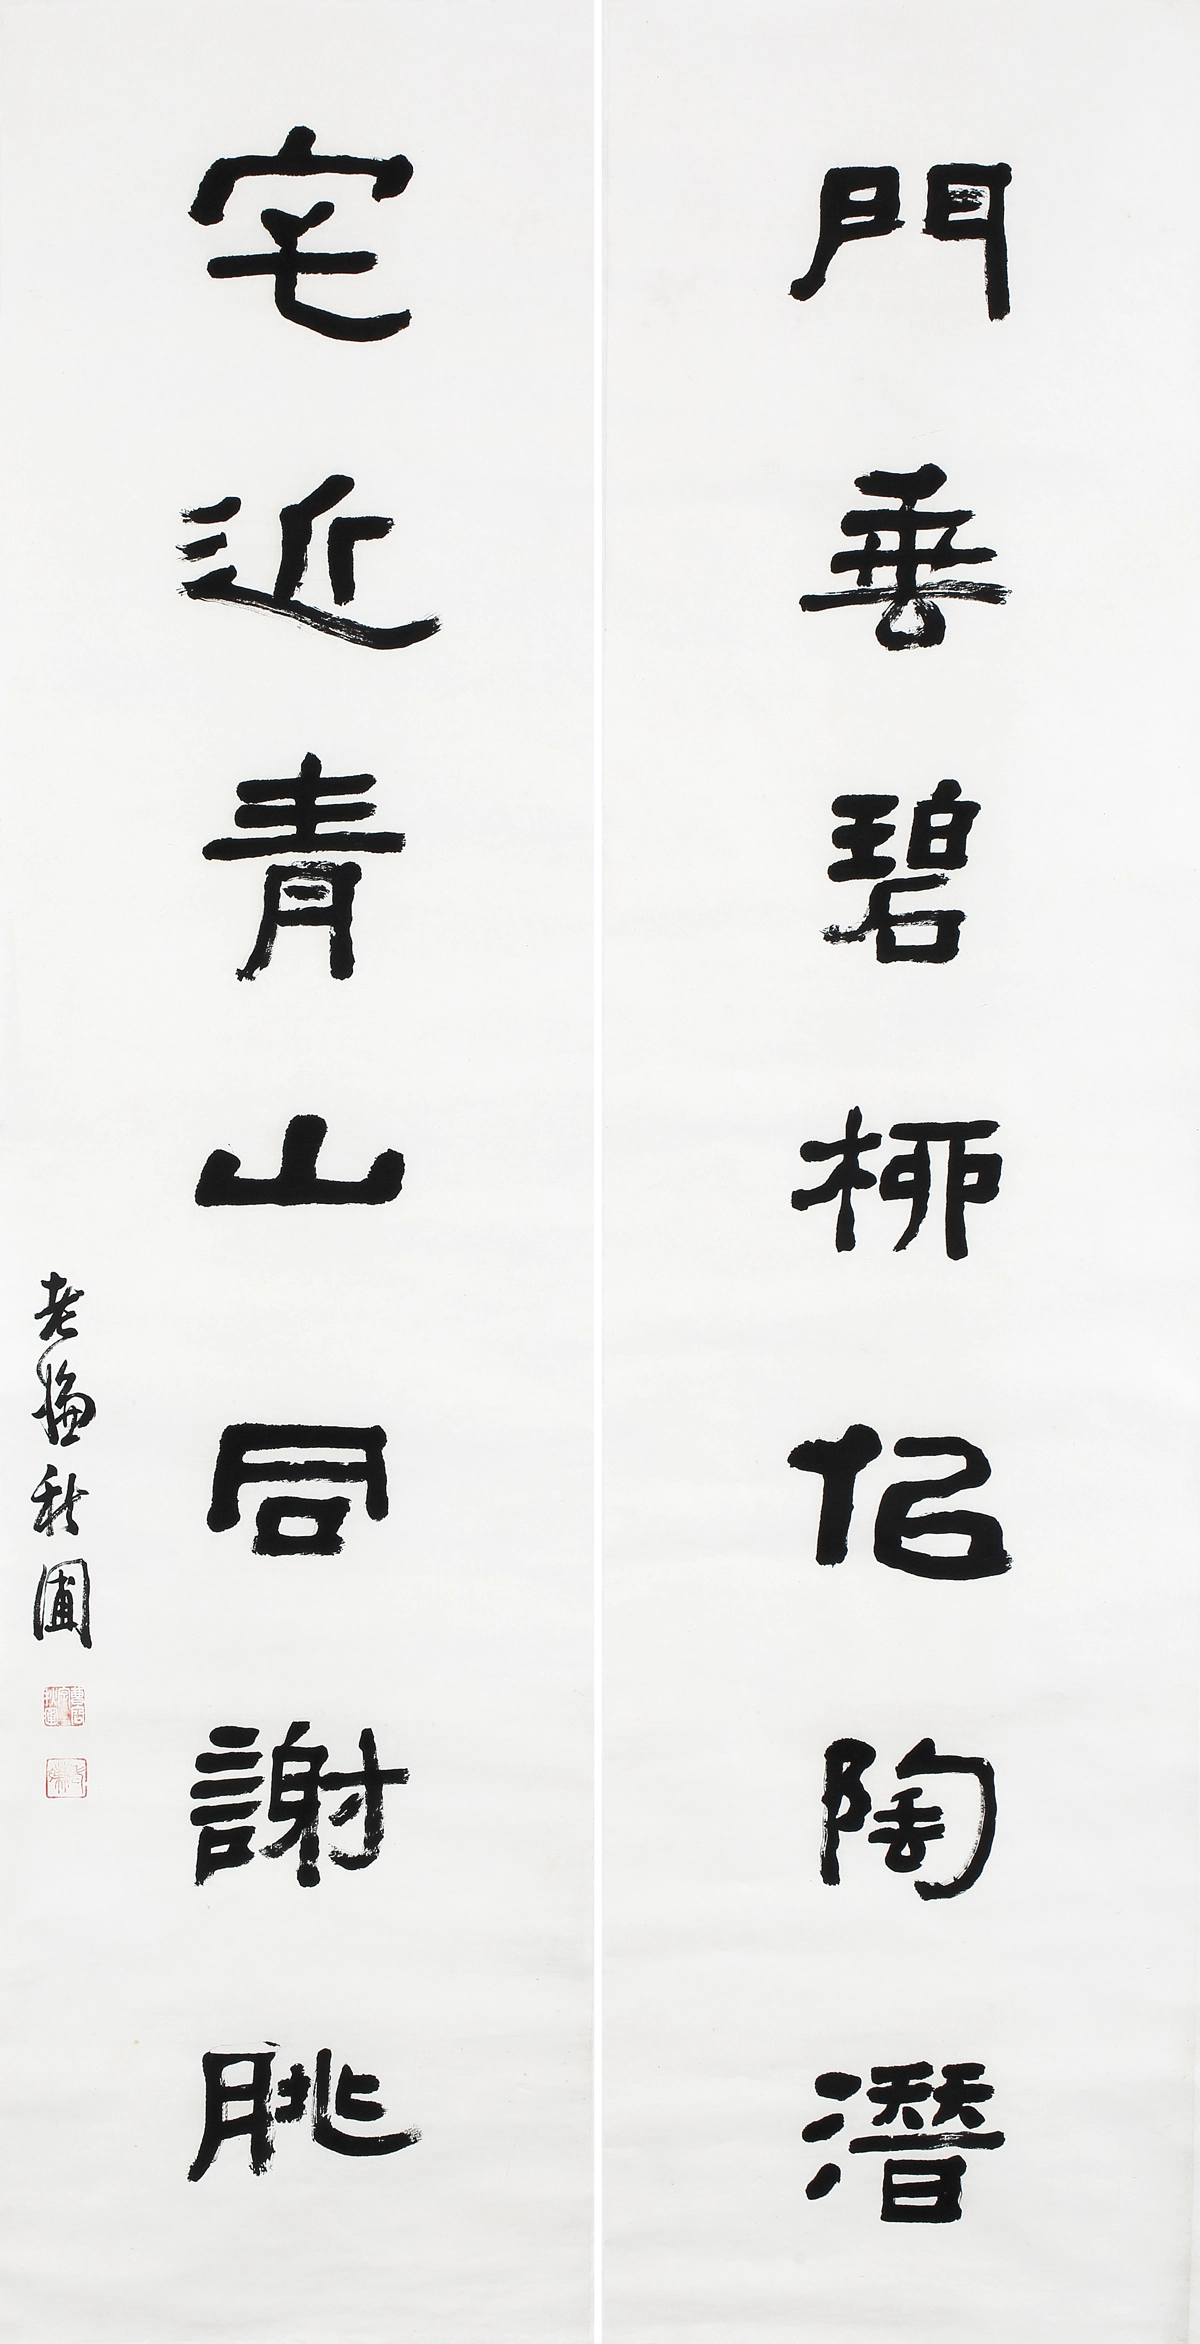 門垂碧柳佀陶潛
宅近青山同謝朓
老嫌秋圃